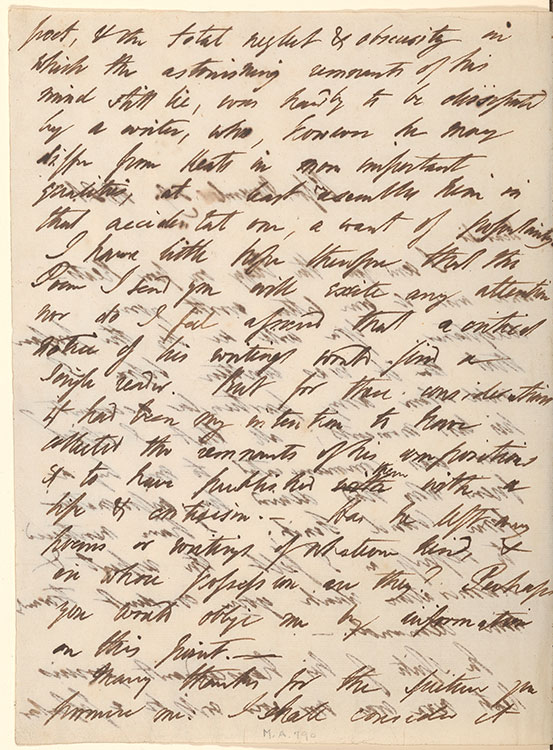 poet, & the total neglect & obscurity in
which the astonishing remnants of his
mind still lie, was hardly to be dissipated
by a writer, who, however he may
differ from Keats in more important
qualities at least resembles him in
that accidental one, a want of popularity
I have little hope therefore that the
Poem I send you will excite any attention
nor do I feel assured that a critical
notice of his writings would find a
single reader. But for these considerations
it had been my intention to have
collected the remnants of his compositions
& to have published them with a
life & criticism. — Has he left any
poems or writings of whatsoever kind, &
in whose possession are they? Perhaps
you would oblige me by information
on this point. —
Many thanks for the picture you
promise me. I shall consider it
M.A. 790